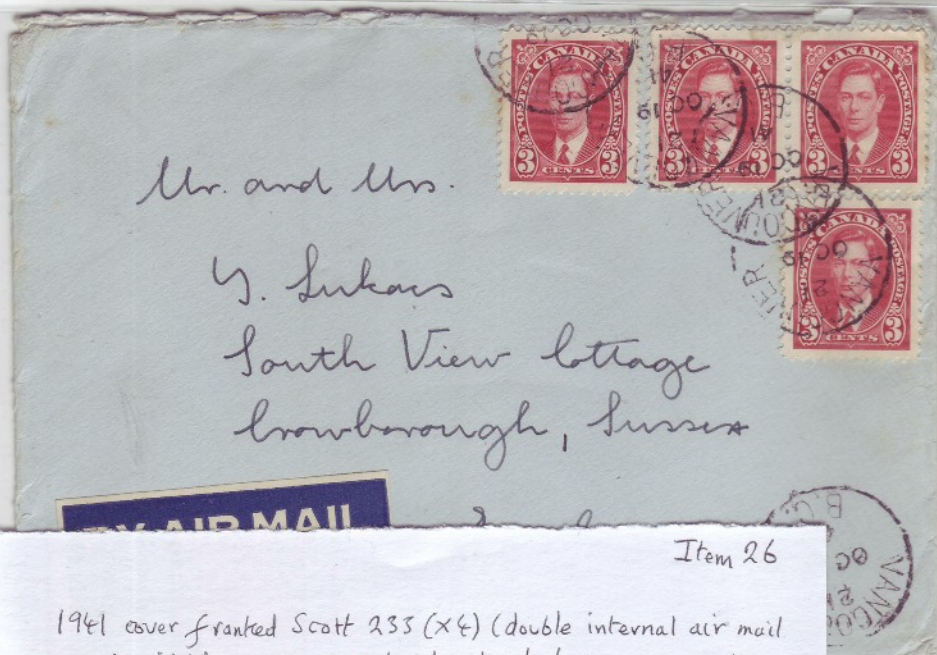 POSTES CANADA POSTAGE
3 CENTS 3
POSTES CANADA POSTAGE
3 CENTS 3
POSTES CANADA POSTAGE
3 CENTS 3
POSTES CANADA POSTAGE
3 CENTS 3
VANCOUVER
OC 19
41
Mr. and Mrs.
Y. Lukacs
South View Cottage
Crowborough, Sussex
BY AIR MAIL
B.C.
OC
VANCOU
Item 26
1941 cover franked Scott 233 (x4) (double internal air mail